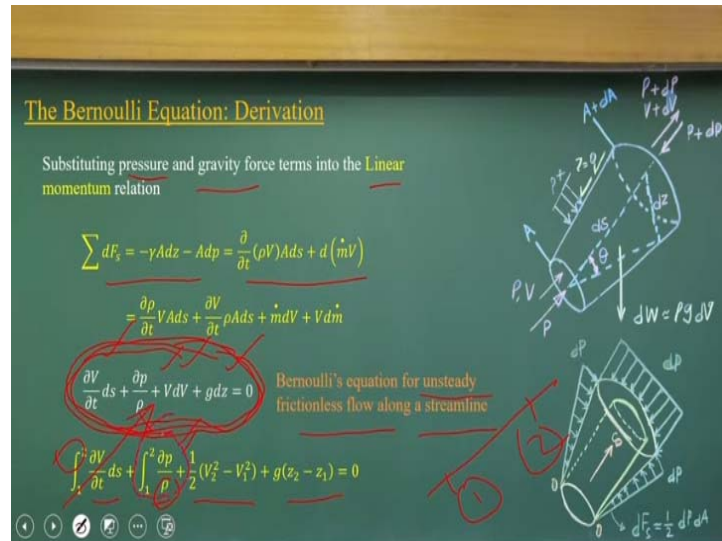 The Bernoulli Equation: Derivation
Substituting pressure and gravity force terms into the Linear
momentum relation
∑ dFₛ = −γAdz − Adp = ∂/∂t (ρV)Ads + d(ṁV)
= ∂ρ/∂t VAds + ∂V/∂t ρAds + ṁdV + Vdṁ
∂V/∂t ds + ∂p/ρ + VdV + gdz = 0
Bernoulli's equation for unsteady
frictionless flow along a streamline
∫₁² ∂V/∂t ds + ∫₁² ∂p/ρ + 1/2 (V₂² − V₁²) + g(z₂ − z₁) = 0
1
2
A+dA
P+dP
V+dV
P+dP
τ=0
ds
dz
A
θ
P, V
P
dW = ρg dV
dP
dP
dP
S
0
0
dFₛ = 1/2 dP dA